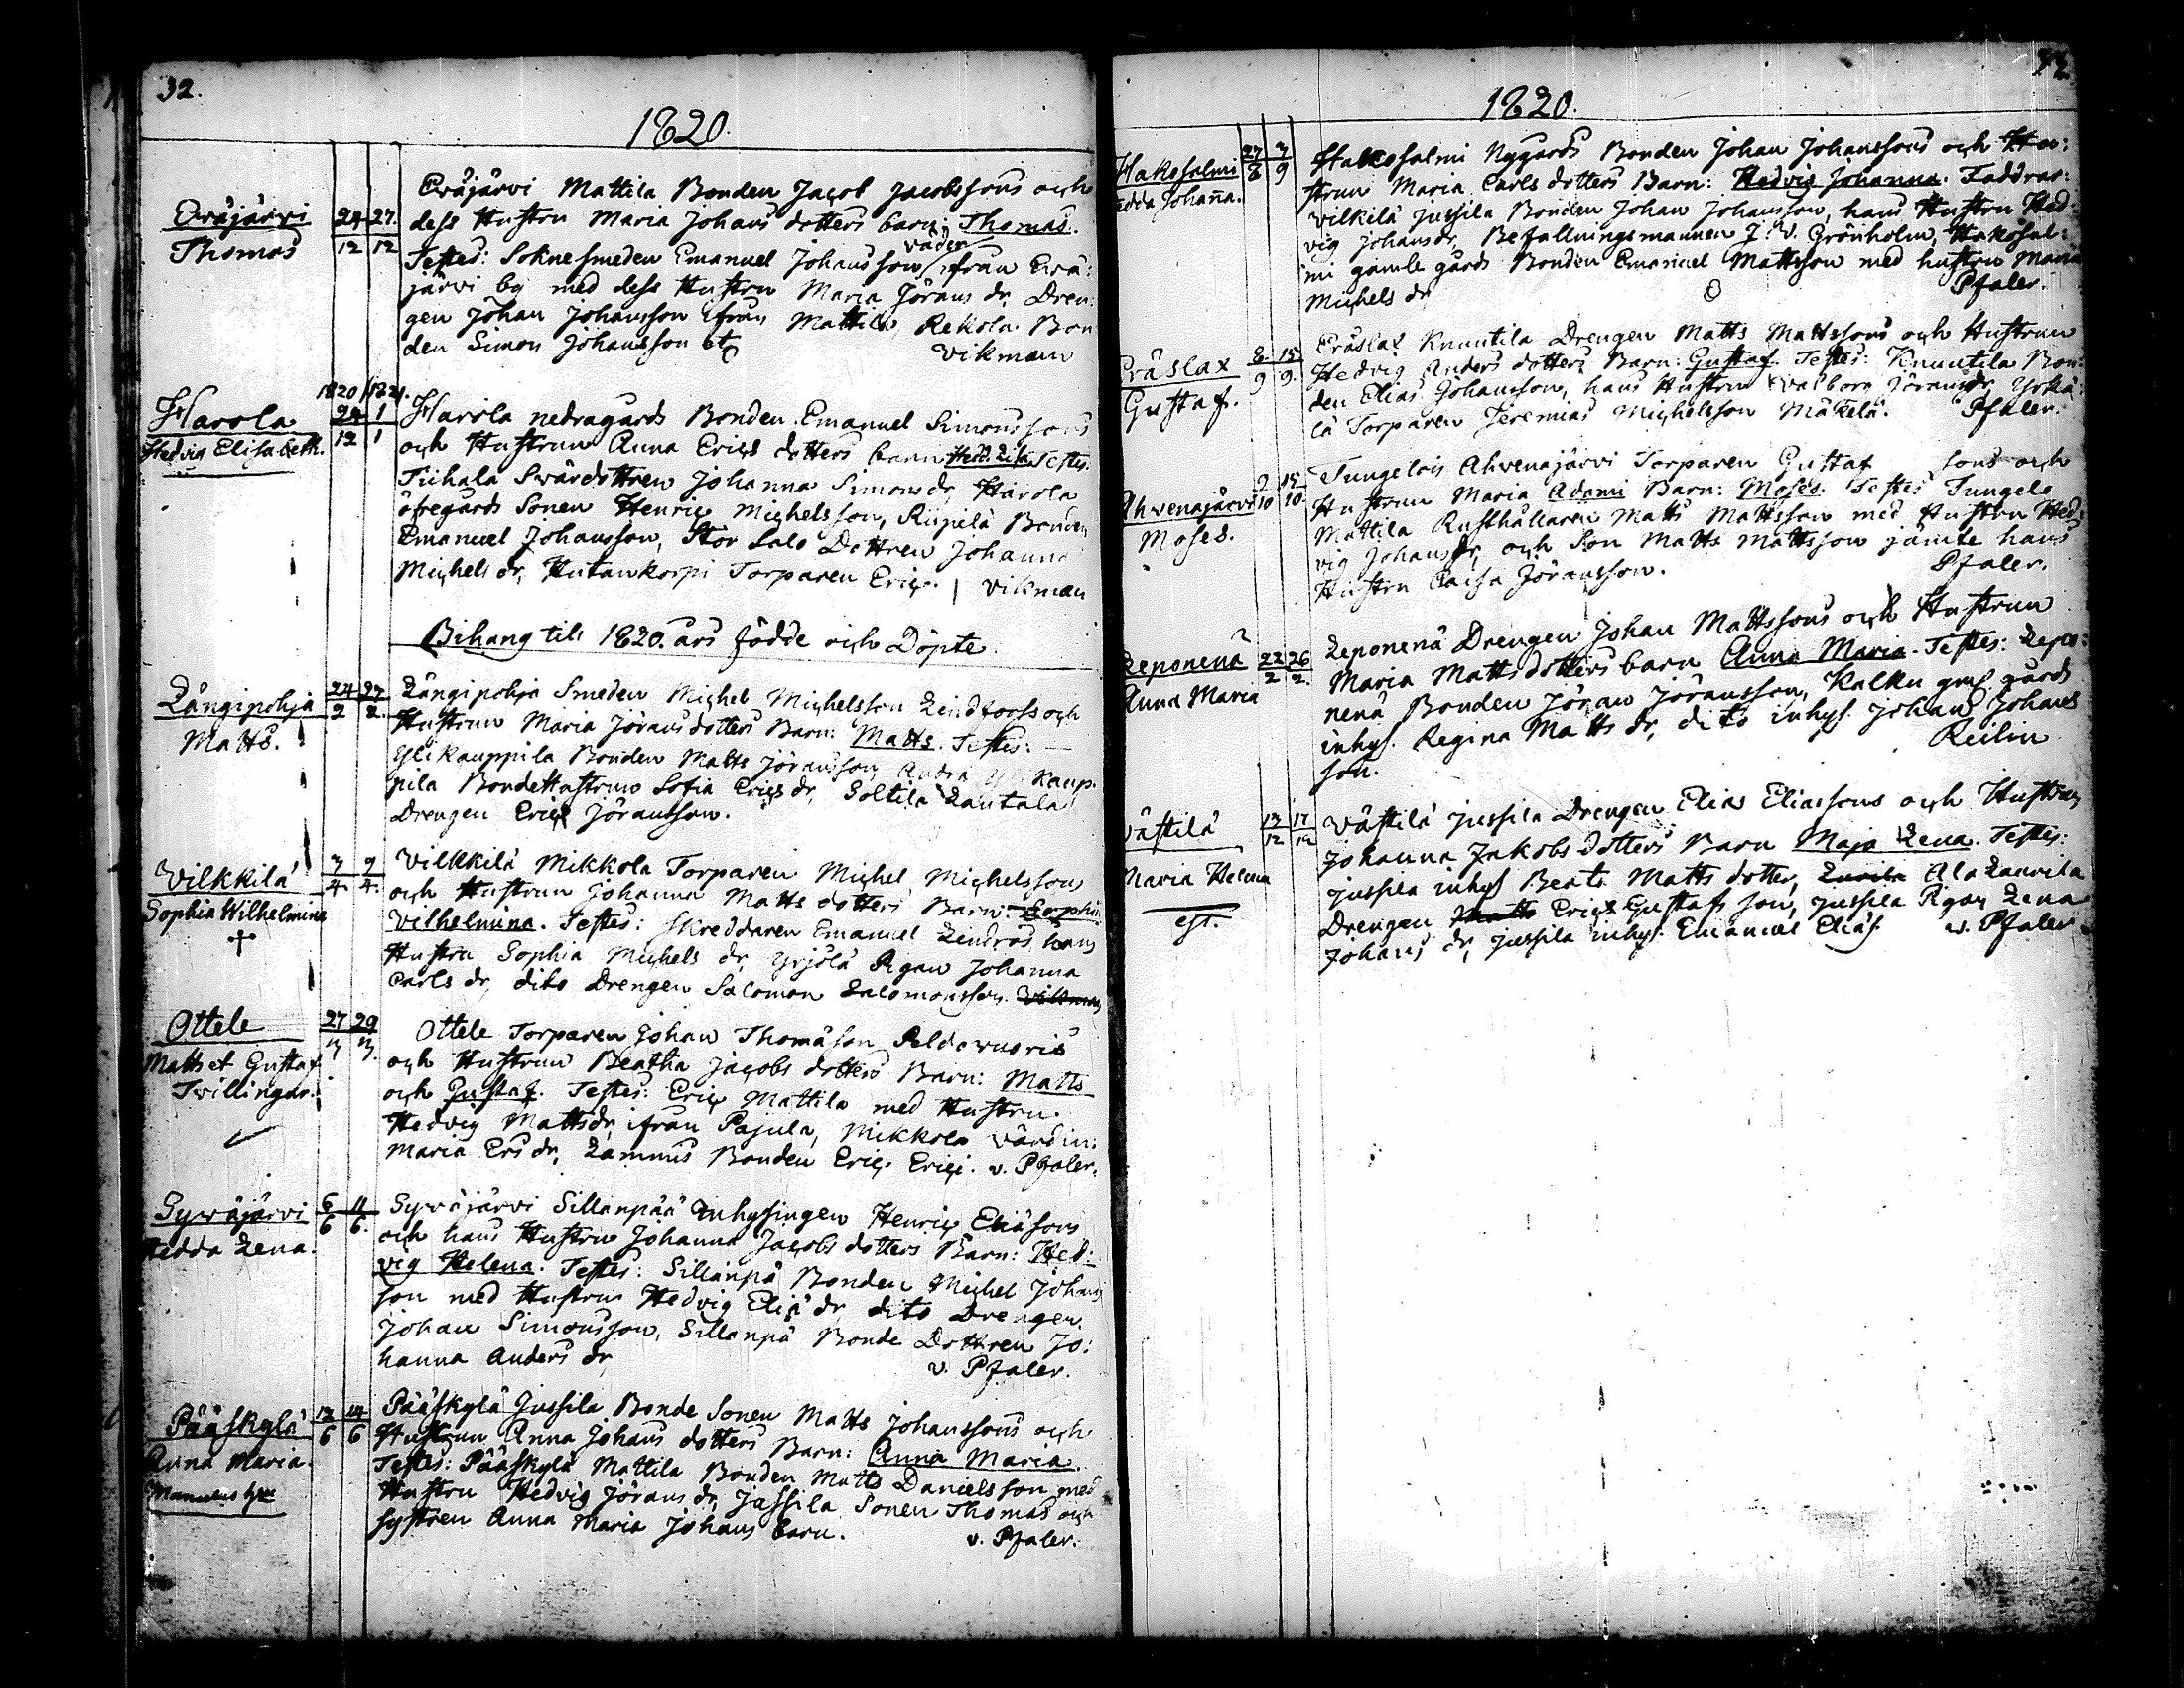 32.
1820.
Eräjärvi
Thomas
24 27.
12 12
Eräjärvi Mattila Bonden Jacob Jacobssons och
dess Hustru Maria Johans dotters barn, Thomas.
Testes: Soknesmeden Emanuel Johansson ifrån Erä-
järvi by med dess Hustru Maria Jörans dr, Dren-
gen Johan Johansson ifrån Mattila, Rekola Bon
den Simon Johansson etc
Vikman
1820 1821.
Harola
Hedvig Elisabeth.
24 1
12 1
Harola nedragårds Bonden Emanuel Simonssons
och Hustrun Anna Erics dotters barn Hed. Lisa Testes:
Tiihala Swärdottren Johanna Simons dr, Harola
öfregårds Sonen Henric Michelsson, Riipilä Bonden
Emanuel Johansson, Stor Salo Dottren Johanna
Michels dr, Hutankorpi Torparen Eric. Vikman
Bihang till 1820. års födde och Döpte.
Långipohja
Matts.
24 27
2 2.
Långipohja Smeden Michel Michelsson Lindfors och
Hustrun Maria Jörans dotters Barn: Matts. Testes:
Ylikauppila Bonden Matts Jöransson, Andra Yli Kaup-
pila BondeHustrun Sofia Erics dr, Soltila Lautala
Drengen Eric Jöransson.
Vilkkilä
Sophia Wilhelmina
†
7 9
4. 4.
Vilkkilä Mikkola Torparen Michel Michelssons
och Hustrun Johanna Matts dotters Barn: Sophia
Vilhelmina. Testes: Skreddaren Emanuel Lindros hans
Hustru Sophia Michels dr, Yrjölä Pigan Johanna
Carls dr, dito Drengen Salomon Salomonsson. Vikman
Ottele
Matts et Gustaf
Tvillingar.
27 29
3 3.
Ottele Torparen Johan Thomasson Peldovuoris
och Hustrun Beatha Jacobs dotters Barn: Matts
och Gustaf. Testes: Eric Mattila med Hustru.
Hedvig Matts dr, ifrån Pajula, Mikkola värdin:
Maria Ers dr, Lammis Bonden Eric Erici. v. Pfaler.
Syväjärvi
Hedda Lena.
6 11
6 6.
Syväjärvi Sillanpää Inhysingen Henric Eliäsons
och hans Hustru Johanna Jacobs dotters Barn: Hed-
vig Helena. Testes: Sillanpä Bonden Michel Johans
son med Hustrus Hedvig Eliä dr, dito Drengen
Johan Simonsson, Sillanpä Bonde Dottren Jo:
hanna Anders dr,
v. Pfaler.
Pääskylä
Anna Maria.
12 14
6 6
Pääskylä Jussila Bonde Sonen Matts Johanssons och
Hustrun Anna Johans dotters Barn: Anna Maria.
Testes: Pääskylä Mattila Bonden Matts Danielsson med
Hustru Hedvig Jörans dr, Jussila Sonen Thomas och
Systren Anna Maria Johans barn.
v. Pfaler.
1820.
Hakosalmi
Hedda Johanna.
27 3
8 9
Hakosalmi Nygårds Bonden Johan Johanssons och Hu-
strun Maria Carls dotters Barn: Hedvig Johanna. Faddrar:
Vilkilä Jussila Bonden Johan Johansson, hans Hustru Hed-
vig Johans dr, Befallningsmannen J. W. Grönholm, Hakosal-
mi gamle gårds Bonden Emanuel Mattsson med hustru Maria
Michels dr
Pfaler.
Eräslax
Gustaf.
8. 15
9 9.
Eräslax Knuutila Drengen Matts Mattssons och Hustrun
Hedvig Anders dotters Barn: Gustaf. Testes: Knuutila Bon-
den Elias Johansson, hans Hustru Valborg Jörans dr,
lä Torparen Jeremias Michelsson Mäkelä. Pfaler.
Ahvenajärvi
Moses.
9 15
10 10.
Tungelois Ahvenajärvi Torparen Gustaf sons och
Hustrun Maria Adami Barn: Moses. Testes Tungelo
Mattila Rusthållaren Matts Mattsson med Hustru Hed-
vig Johans dr, och Son Matts Mattsson jämte hans
Hustru Caisa Jöransson.
Pfaler.
Leponenä
Anna Maria
22 26
2 2.
Leponenä Drengen Johan Mattssons och Hustrun
Maria Mattsdotters barn Anna Maria. Testes: Lepo-
nenä Bonden Jöran Jöransson, Kalku gård
inhys. Regina Matts dr, dito inhys. Johan Johans
son.
Reilin
Västilä
Maria Helena
est.
13 17
12 12
Västilä Jussila Drengen Elias Eliassons och Hustrun
Johanna Jakobs dotters Barn Maja Lena. Testes:
Jussila inhys Beata Matts dotter, Laurila Ala Laurila
Drengen Matts Eric Gustafs son, Jussila Pigan Lena
Johans dr, Jussila inhys. Emanuel Eliäs. v. Pfaler